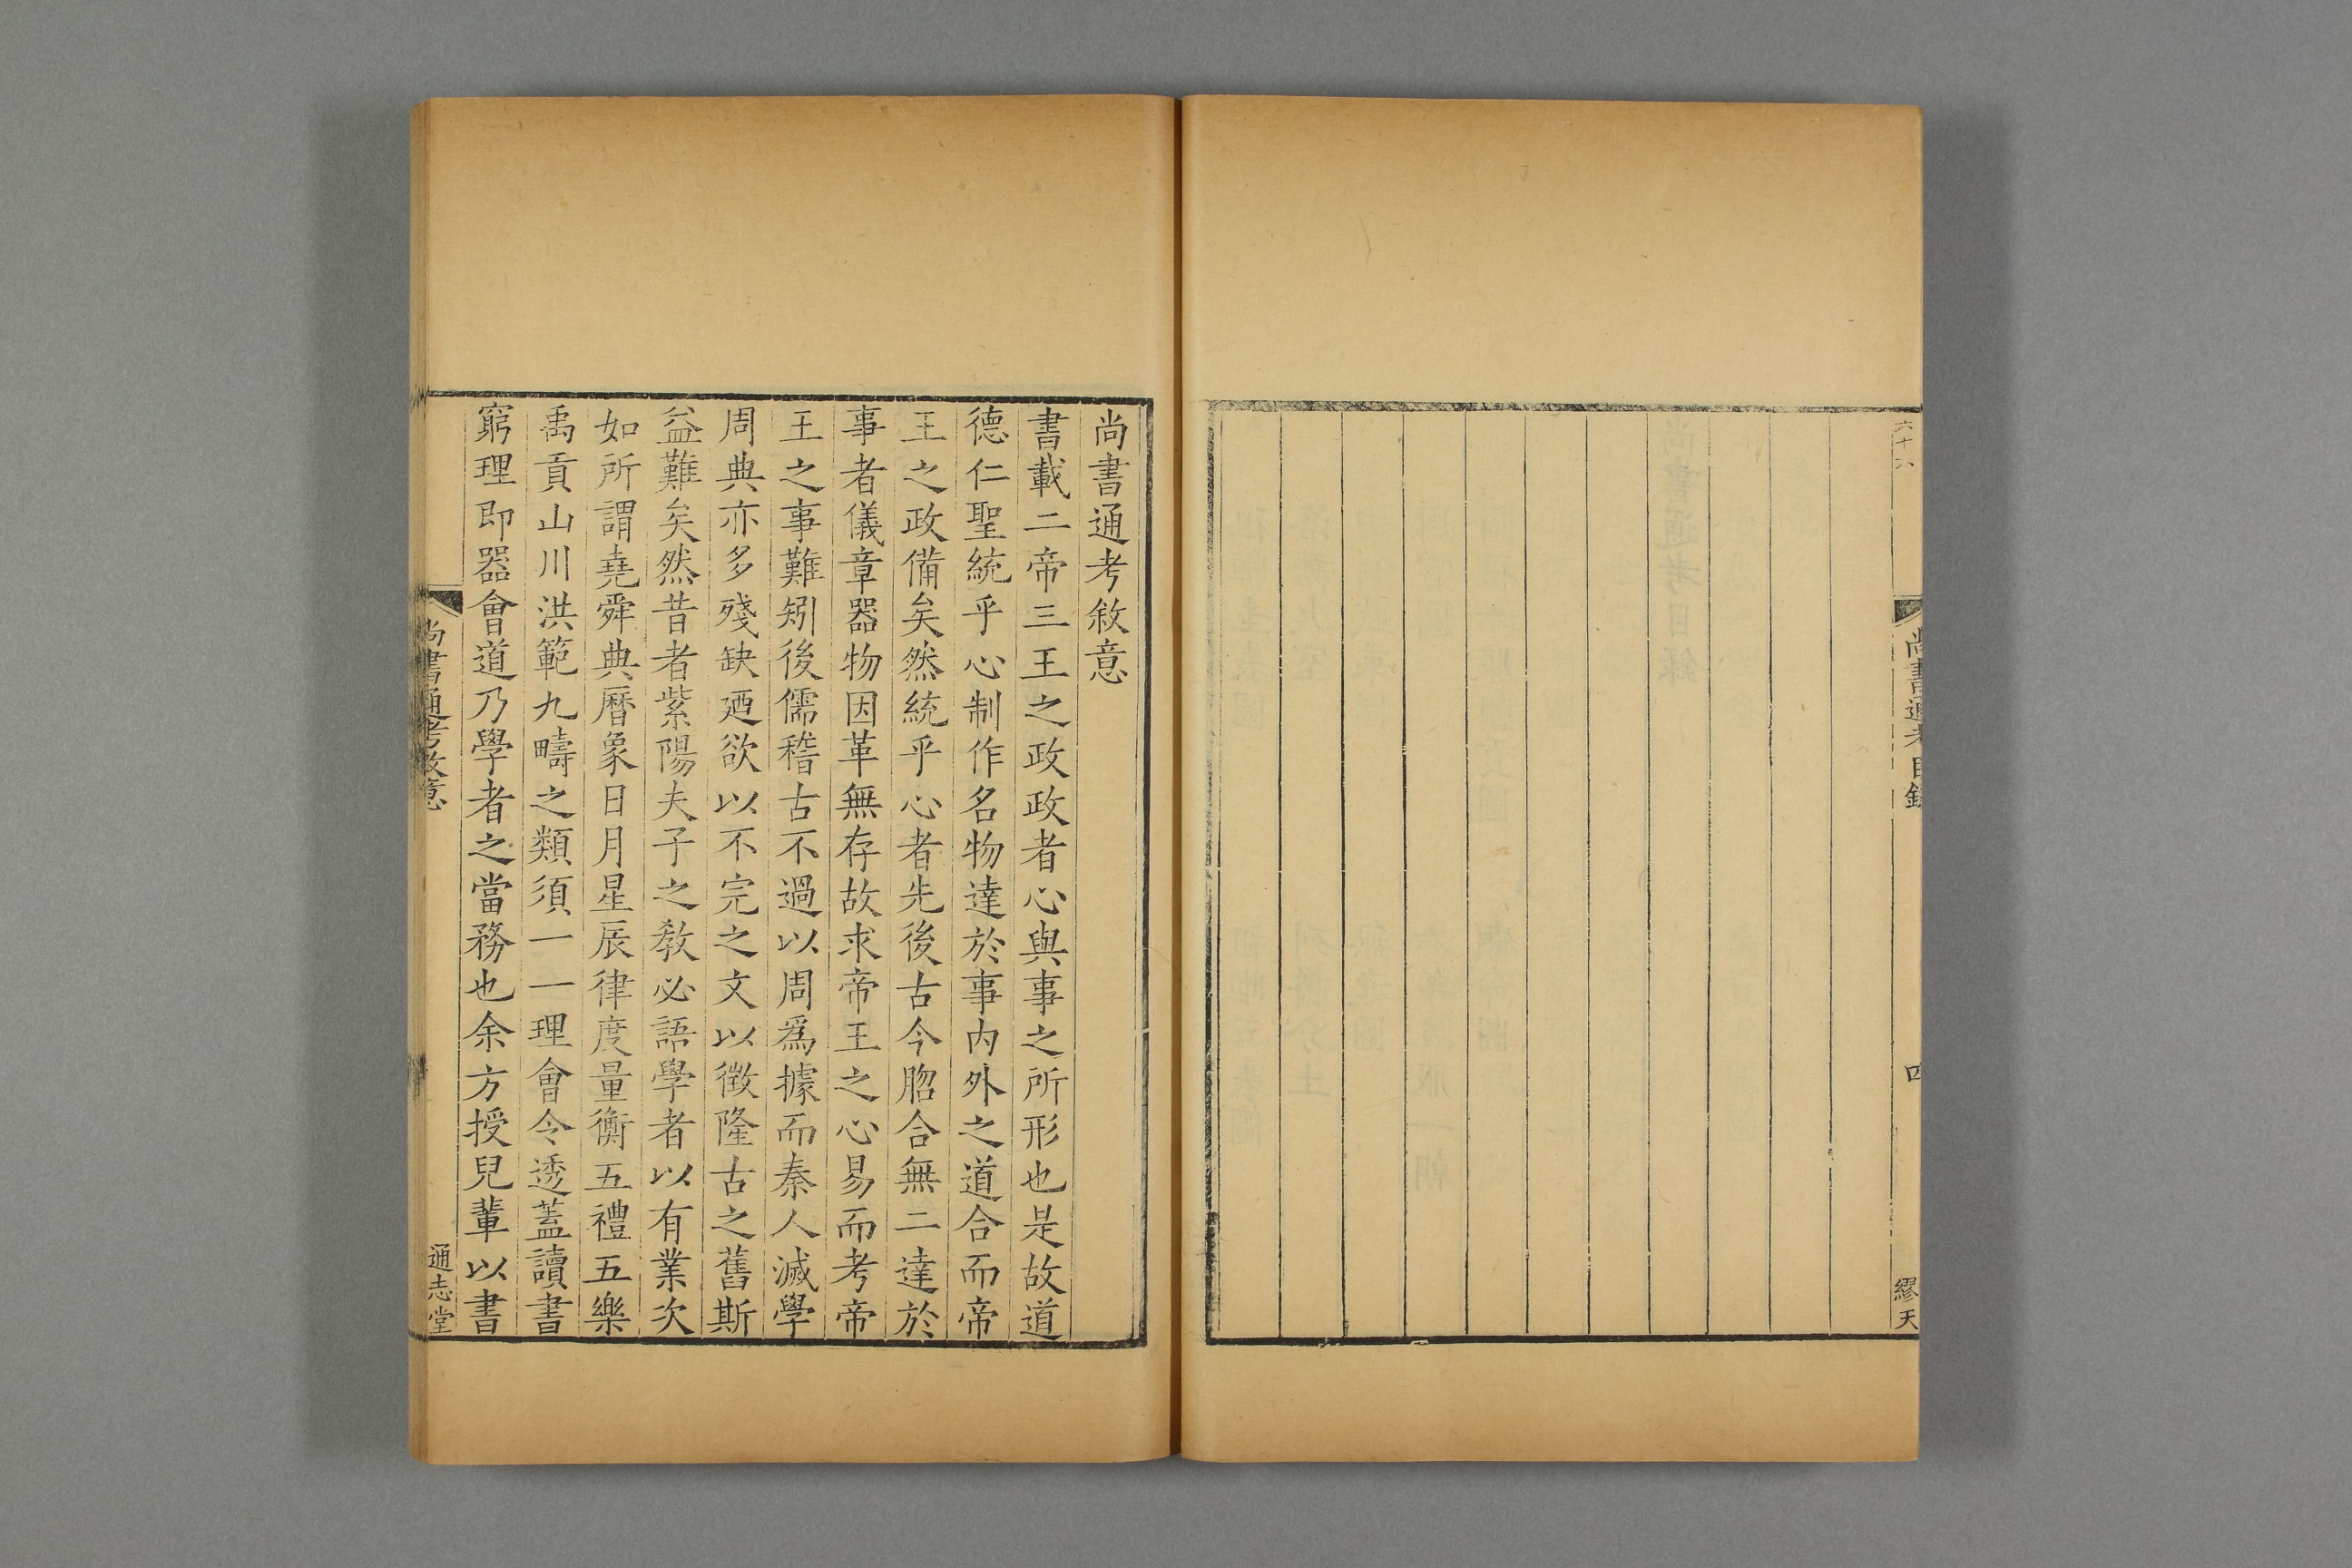 六十六
尚書通考目錄
四
繆天
尚書通考敘意
書載二帝三王之政政者心與事之所形也是故道
德仁聖統乎心制作名物達於事內外之道合而帝
王之政備矣然統乎心者先後古今脗合無二達於
事者儀章器物因革無存故求帝王之心易而考帝
王之事難矧後儒稽古不過以周爲據而秦人滅學
周典亦多殘缺廼欲以不完之文以徵隆古之舊斯
益難矣然昔者紫陽夫子之教必語學者以有業次
如所謂堯舜典曆象日月星辰律度量衡五禮五樂
禹貢山川洪範九疇之類須一一理會令透蓋讀書
窮理即器會道乃學者之當務也余方授兒輩以書
尚書通考敘意
通志堂